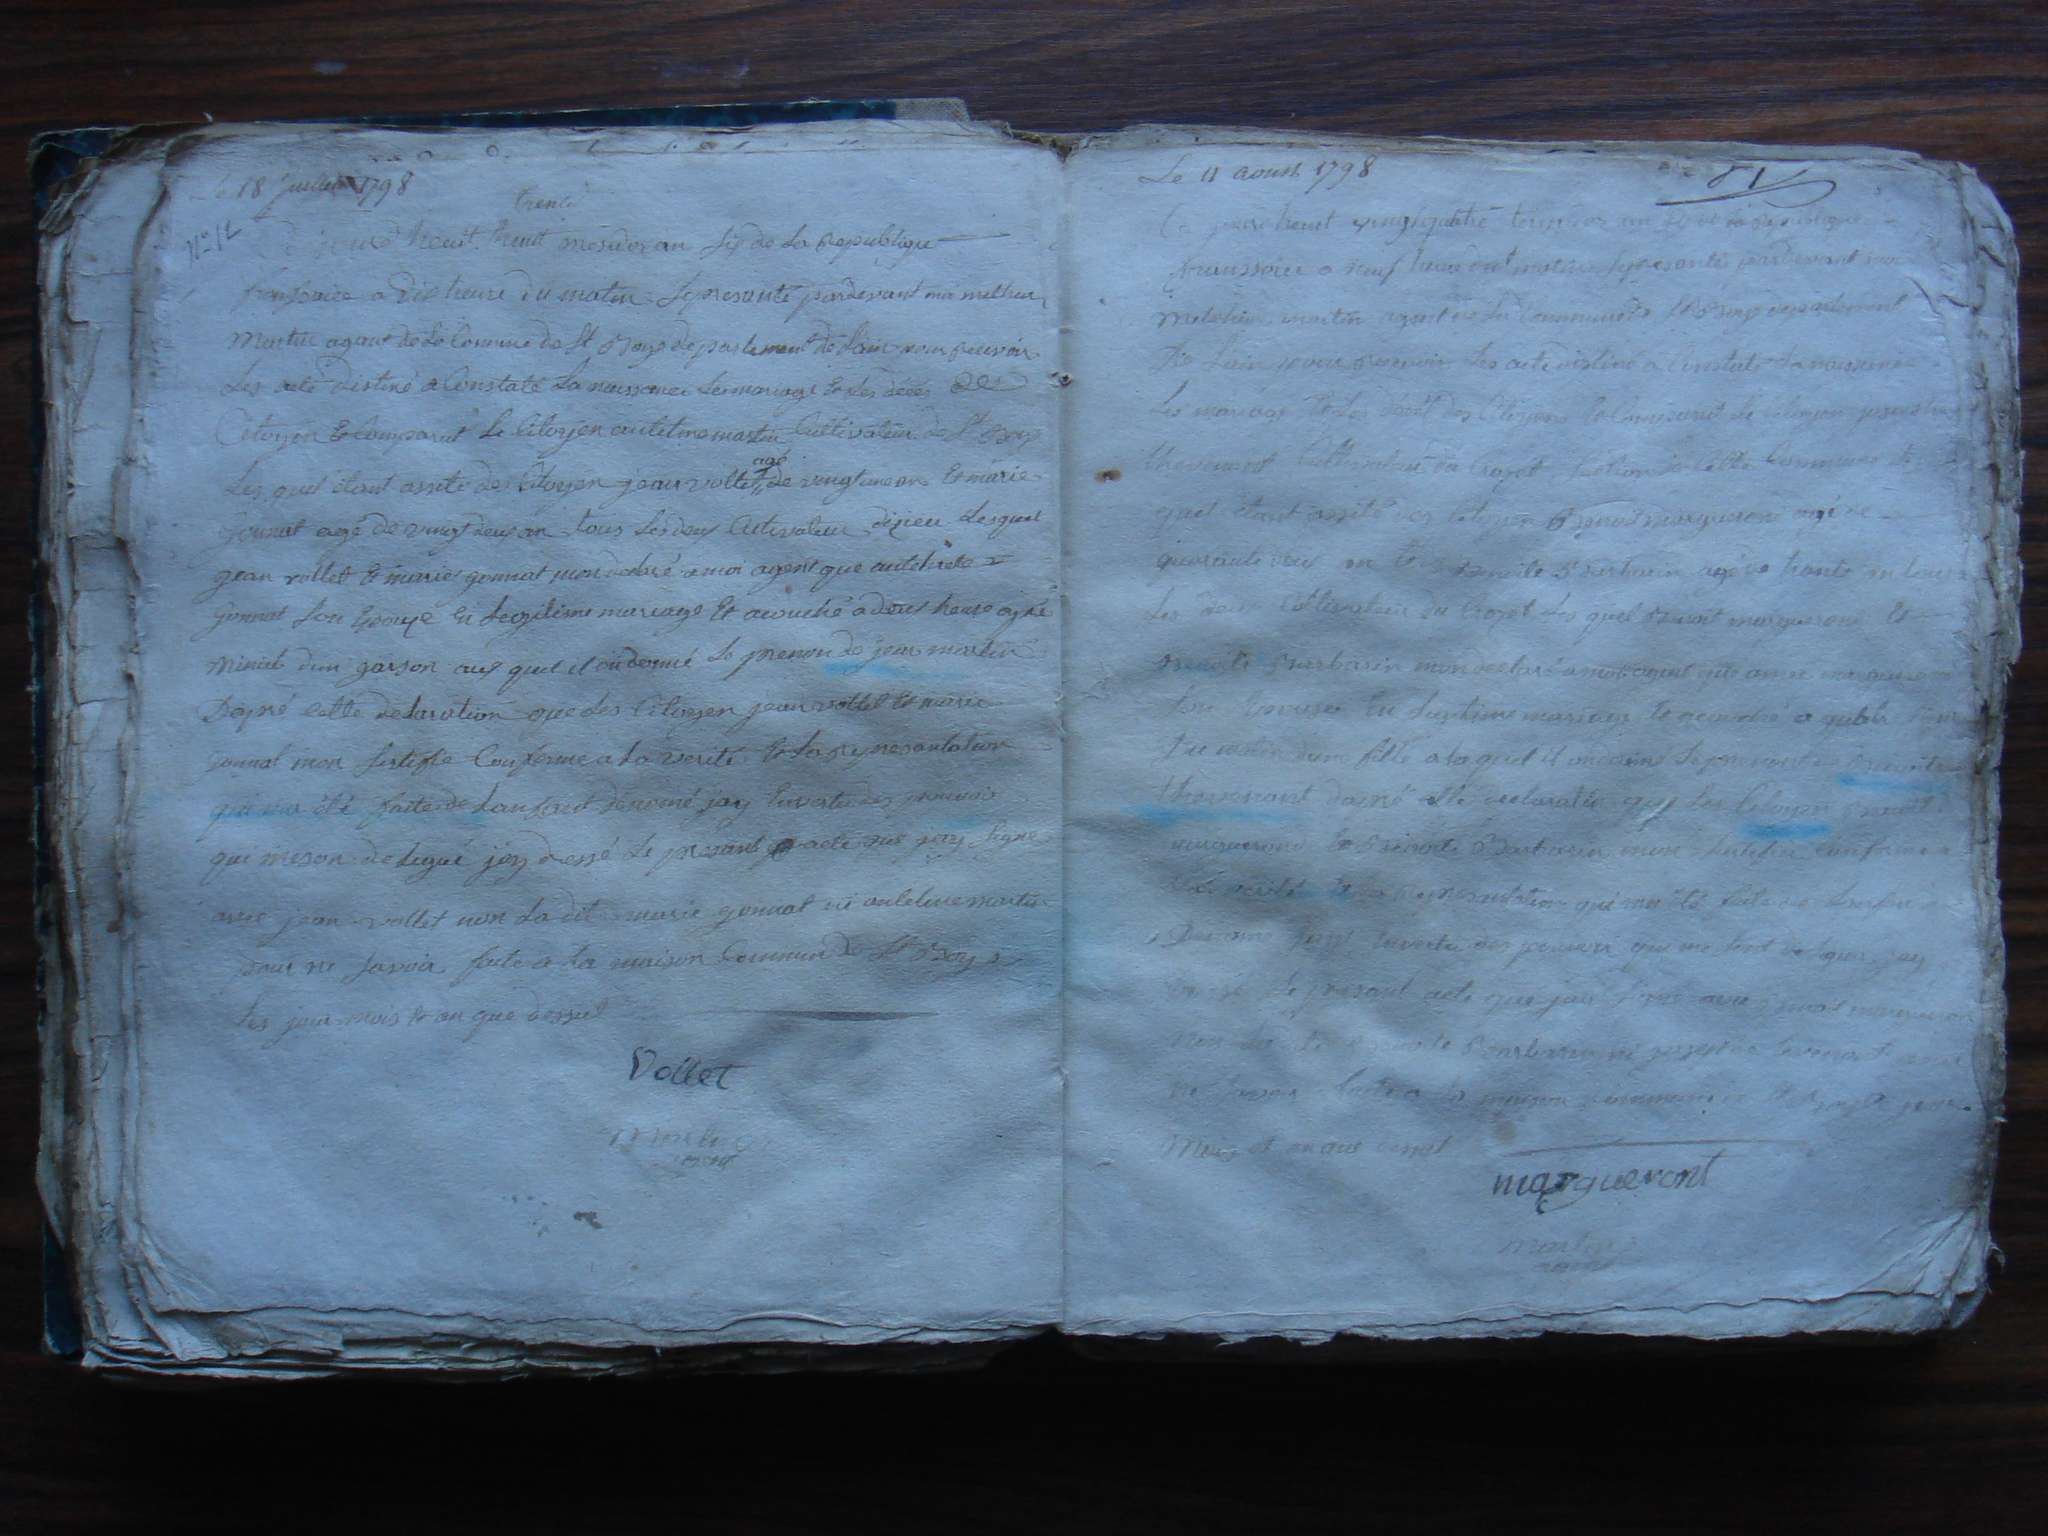 Le 18 Juillet 1798
N° 12
trente
jourd'heuit huit mesider an six de La Republique
fransaice a dix heure du matin se presenté pardevant moi melhier
Martin agant de La Commune de St Boys departement de Lain pour recevoir
Les acte destiné a Constaté La naissance Les mariage Et Les décés des
Citoyen Et Comparut Le Citoyen antelme martin Cultivateur de St Boys
Les quel étant assité des Citoyen jean vollet agé de vingt un an Et marie
gonnat agé de vingt deux an tous Les deux Cultivateur Les quel
jean vollet Et marie gonnat mon declaré a moi agent que
gonnat Son Epouze En Legitime mariage Et acouché a deux heure aprè
Minuit dun garson auquel il on donné Le prenon de jean martin
Dapré cette declaration que Les Citoyen jean vollet Et marie
gonnat mon Sertifié Conforme a La verité Et La representation
qui ma été faite de Lanfant denomé jay Envertu des pouvoir
qui me son delegué jay dressé Le presant acte que jay Signé
avec jean vollet non La dit marie gonnat ni antelme martin
pour ne Savoir faite a La maison Commun de St Boys
Les jour mois Et an que dessus
Vollet
Martin
agent
Le 11 aoust 1798
81
Ce jourd'heuit vingt quatre termidor an six de La Republique
fransoice a neuf heure du matin se presanté pardevant moi
Melchier martin agent de La Commune de St Boys departement
De Lain pour recevoir Les acte destiné a Constaté La naissance
Les mariage Et Les décét des Citoyens Et Comparut Le Citoyen joseph
thevenont Cultivateur du Crozet section de Cette Commune Le
quel étant assité du Citoyen Benoit margueront agé de
quarante deux an Et Benoite Barbarin agé de trante an tous
Les deux Cultivateur du Crozet Les quel Benoit margueront Et
Benoite Barbarin mon declaré a moi agent que anne margueront
Son Epouse En Legitime mariage Et acouché a quatre heure
Du matin dune fille a la quel il on donné Le prenont de Benoite
thevenont dapré cette declaration que Les Citoyen Benoit
margueront Et Benoite Barbarin mon Sertifié Conforme a
La verité Et La representation qui ma été faite de Lanfan
Denomé jay Envertu des pouvoir qui me sont delegué jay
dressé Le presant acte que jay Signé avec Benoit margueront
non La dit Benoite Barbarin ni joseph thevenont pour
ne Savoir faite a La maison Commune de St Boys Les jour
Mois et an que dessus
margueront
Martin
agent